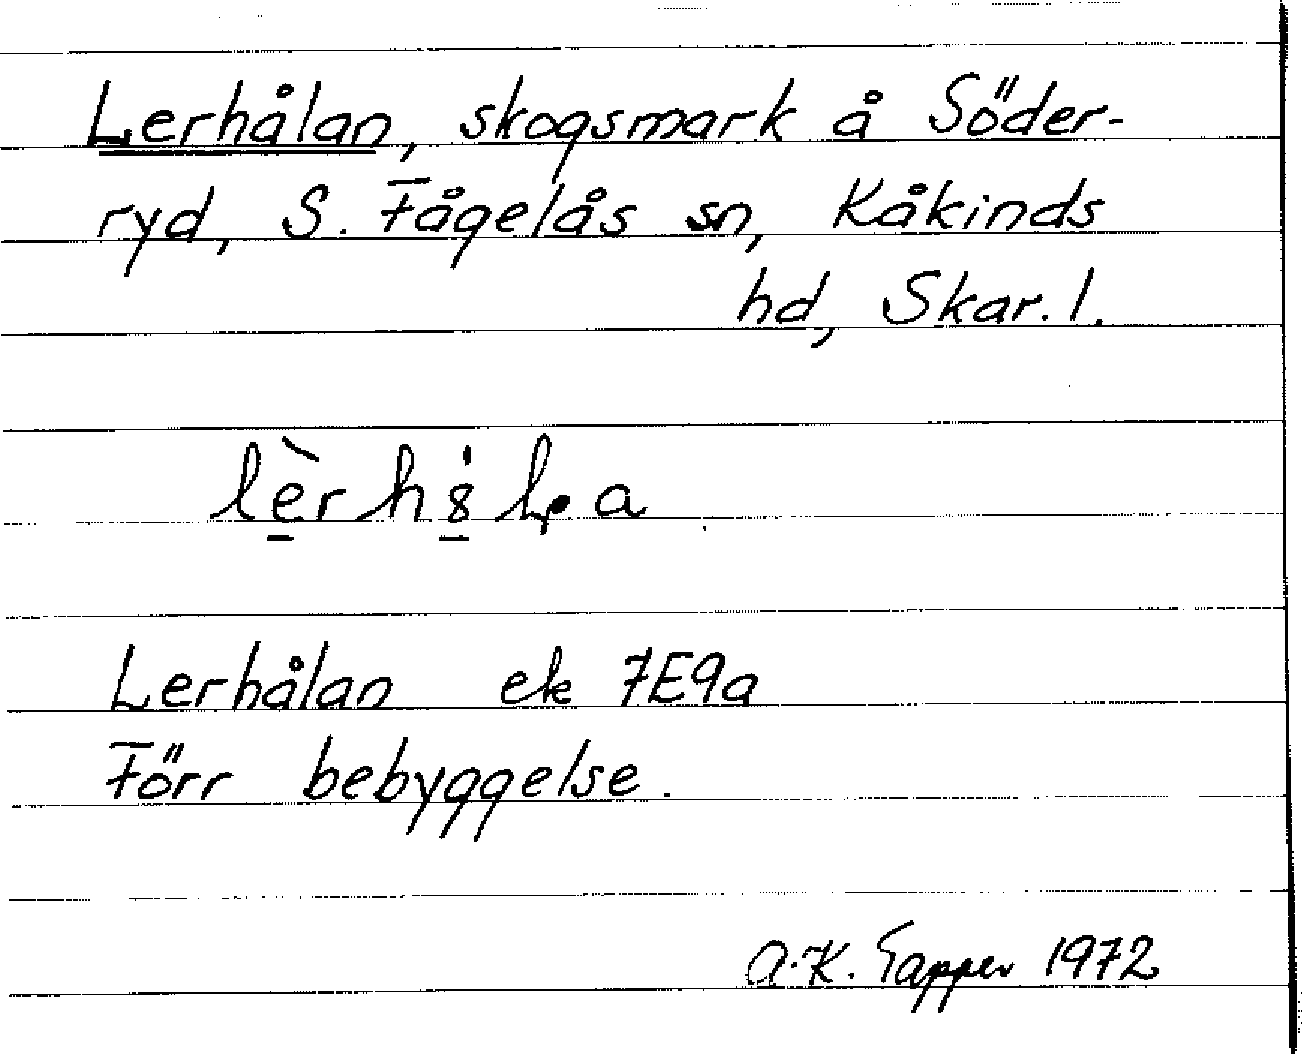 Lerhålan, skogsmark å Söder-
ryd, S. Fågelås sn, Kåkinds
hd, Skar. l.
Lerhålan ek 7E9a
Förr bebyggelse.
A.K. Tapper 1972